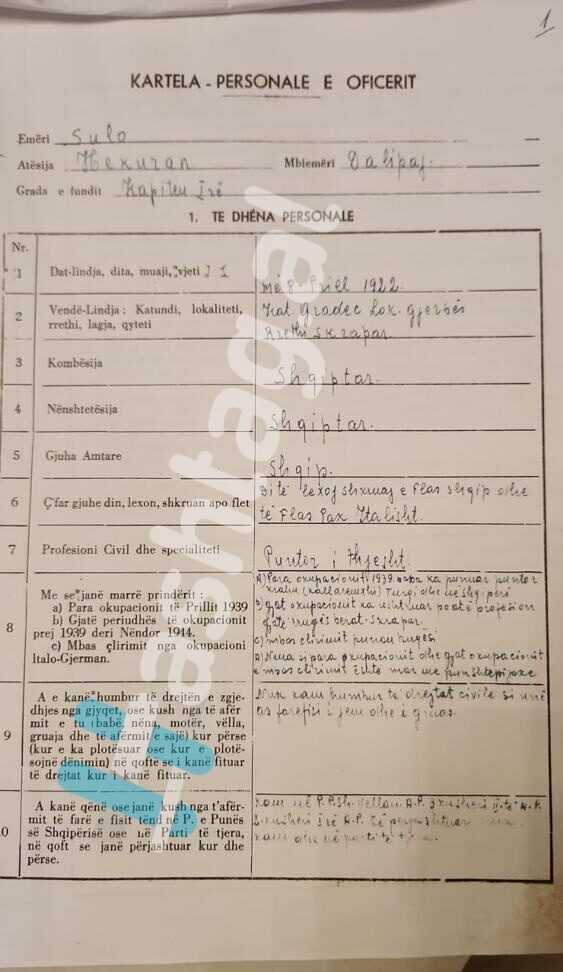 1
KARTELA - PERSONALE E OFICERIT
Emëri Sulo
Atësija Hekuran Mbiemëri Dalipaj.
Grada e fundit Kapiten Irë
1. TË DHËNA PERSONALE
Nr.
1 Dat-lindja, dita, muaji, vjeti
më 8 Priell 1922
2 Vendë-Lindja: Katundi, lokaliteti, rrethi, lagja, qyteti
Kat. Gradec Lok. Gjerbës
Rrethi Skrapar.
3 Kombësija Shqiptar.
4 Nënshtetësija Shqiptar.
5 Gjuha Amtare Shqip.
6 Ç'far gjuhe din, lexon, shkruan apo flet
Di të lexoj shkruaj e Flas shqip dhe
të Flas Pax Italisht.
7 Profesioni Civil dhe specialiteti Puntor i thjesht.
8 Me se janë marrë prindërit :
a) Para okupacionit të Prillit 1939
b) Gjatë periudhës të okupacionit
prej 1939 deri Nëndor 1944.
c) Mbas çlirimit nga okupacioni
Italo-Gjerman.
A) Para okupacionit 1939 baba ka punuar puntor
krahu Turqi dhe në Shqipëri
b) gjat okupacionit ka ushtruar po atë profesion
gjatë rrugës berat-Skrapar.
c) mbas clirimit punon
Nëna si para okupacionit dhe gjat okupacionit
e mbas clirimit është mar me punshtepijake
9 A e kanë humbur të drejtën e zgje-
dhjes nga gjyqet, ose kush nga të afër
mit e tu (babë, nëna, motër, vëlla,
gruaja dhe të afërmit e sajë) kur përse
(kur e ka plotësuar ose kur e plotë-
sojnë dënimin) në qoftë se i kanë fituar
të drejtat kur i kanë fituar.
Nuk kam humbur të drejtat civile si unë
as farefisi i jem dhe i gruas.
0 A kanë qënë ose janë kush nga t'afër-
mit të farë e fisit tënd në P. e Punës
së Shqipërisë ose në Parti të tjera,
në qoft se janë përjashtuar kur dhe
përse.
kam në P.P.Sh. vellan A.P. 3 kusheri
2 kusheri Irë A.P. të perjashtuar nuk
kam dhe në parti të
hashtag.al